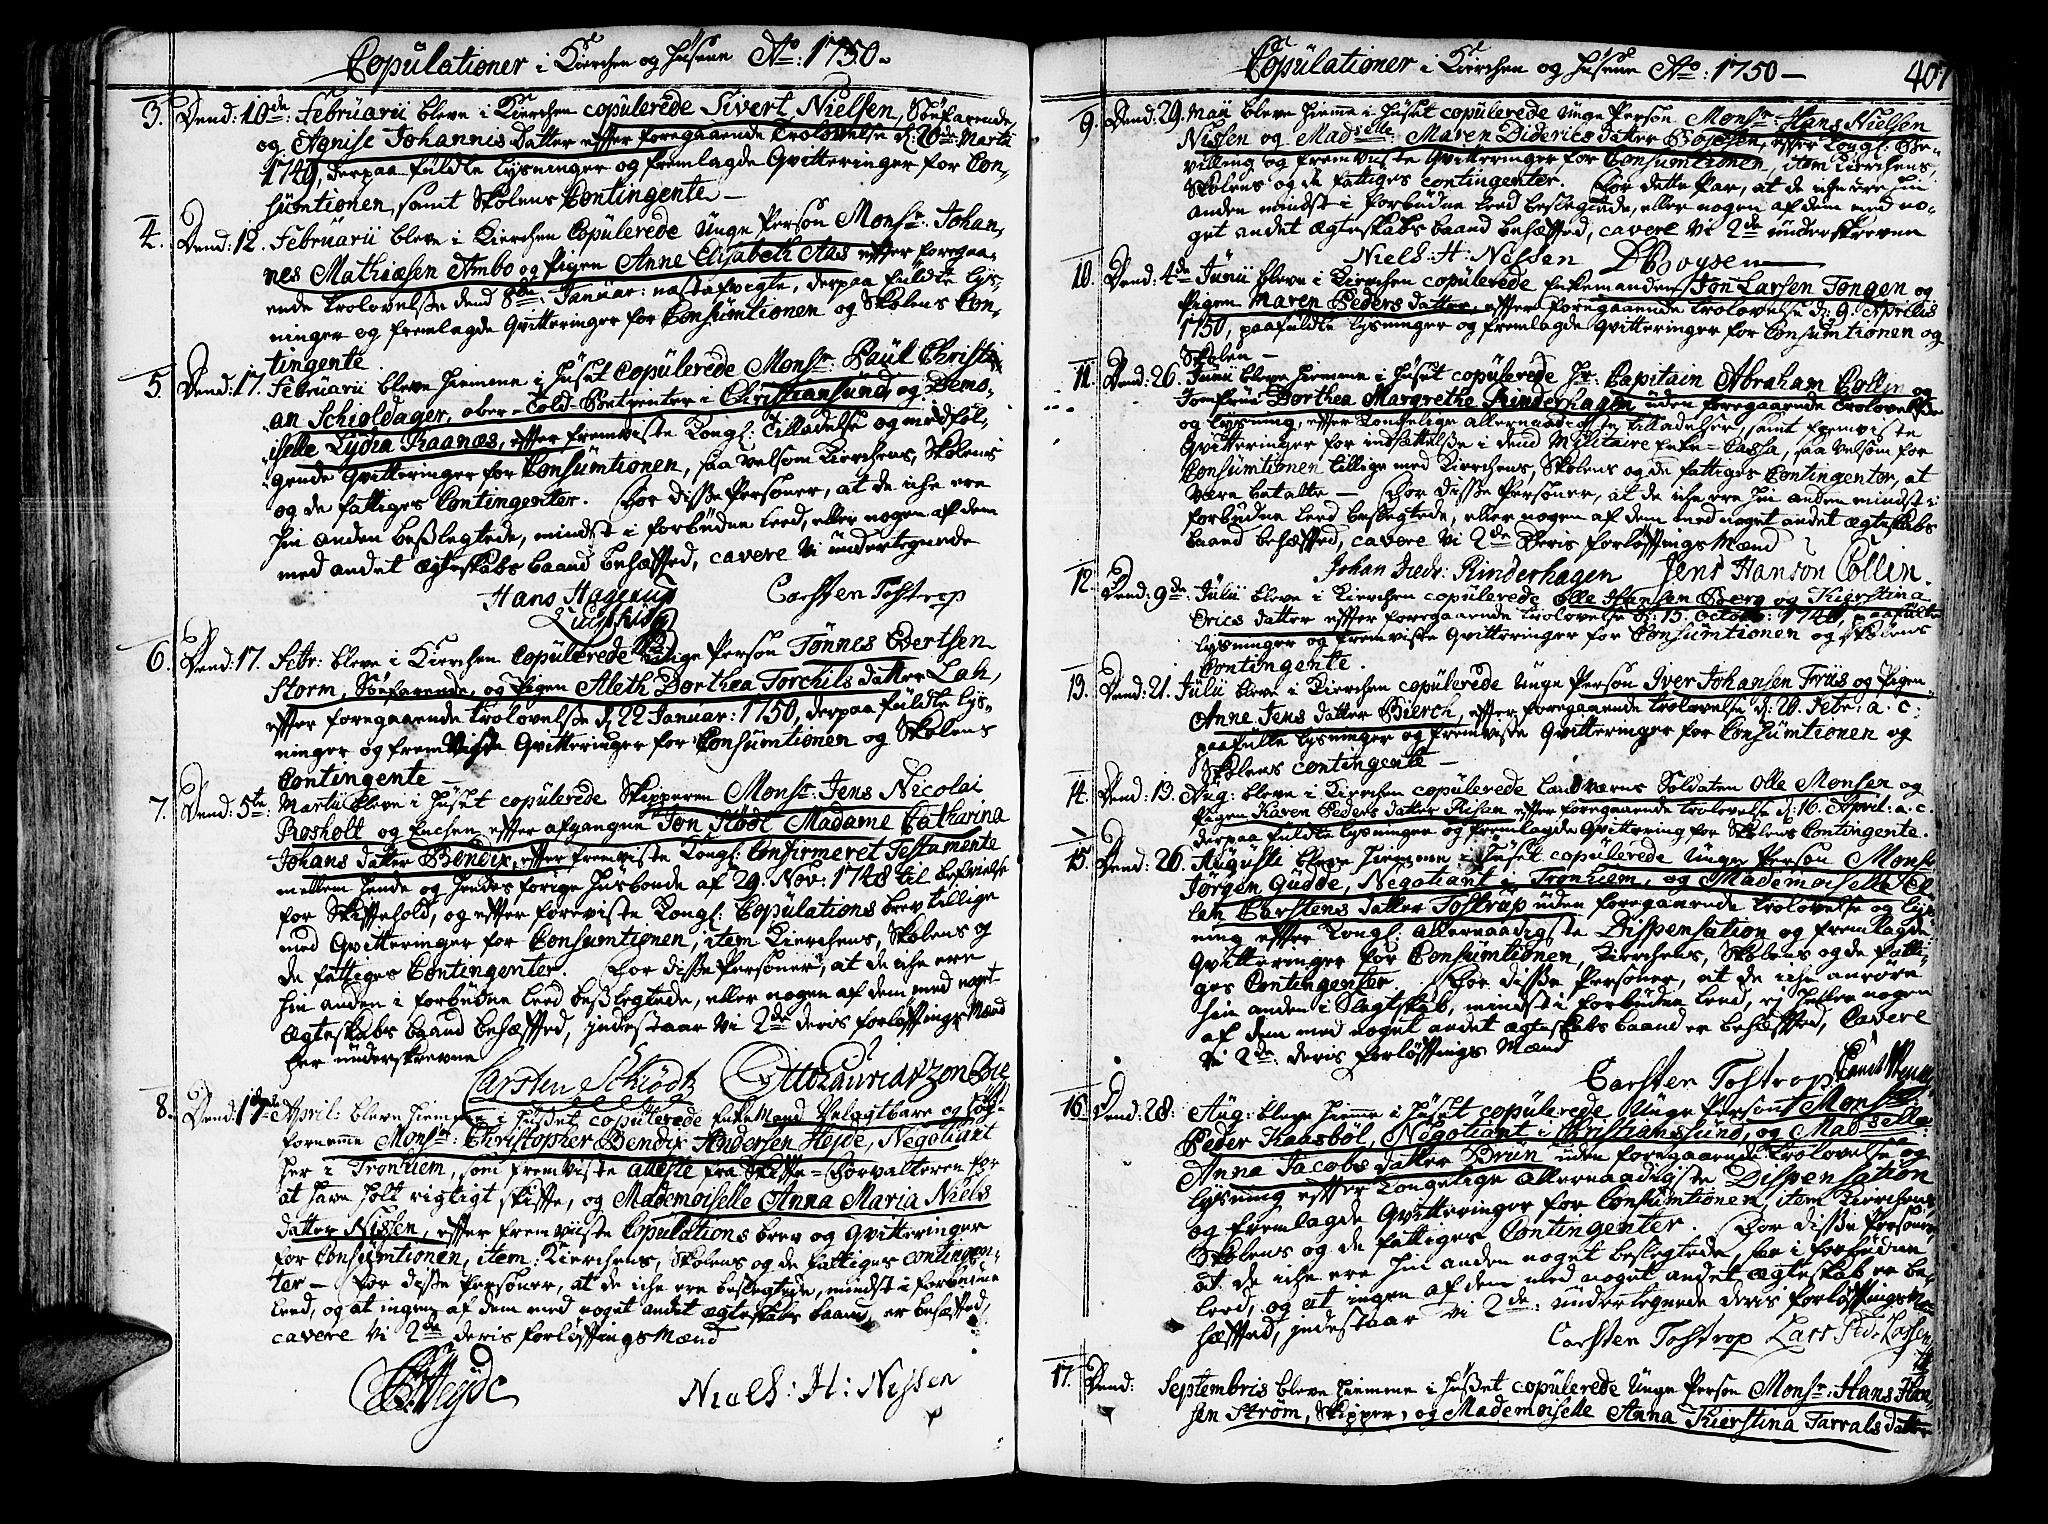 Copulationer i Kirchen og Husene Ao: 1750.
3. Dend: 10de: Februarii bleve i Kirchen copulerede Sivert Nielsen, Søefarende,
og Agnise Johannis Datter efter foregaaende Trolovelse d: 26de Martii
1749, derpaa fuldte lysninger og fremlagde Qvitteringer for Con-
sumtionen, samt Skolens Contingente
4. Dend: 12. Februarii bleve i Kirchen Copulerede Unge Person Monsr: Johan-
nes Mathiæsen Ambo og Pigen Anne Elisabeth Aas efter foregaa-
ende Trolovelse dend 8de: Januar: næstafvigte, derpaa fuldte lys-
ninger og fremlagde Qvitteringer for Consumtionen og Skolens Con-
tingente
5. Dend: 17. Februarii bleve hiemme i Huset Copulerede Monsr: Paul Christi-
an Schioldager, ober-Told-Betienter i Christiansund, og Dems-
iselle Lydia Kaanes, efter fremviste Kongl: Tilladelse og medføl-
gende Qvitteringer for Consumtionen, saa velsom Kirchens, Skolens
og de fattiges Contingenter. For disse Personer, at de iche ere
hin anden beslegtede, mindst i forbudne leed, eller nogen af dem
med andet Ægteskabs baand behæfted, cavere vi undertegnede
Hans Hagerup Carsten Tostrop
6. Dend: 17. Febr: bleve i Kirchen Copulerede Unge Person Tønnes Evertsen
Storm, Søefarende, og Pigen Aleth Dorthea Torchils datter Lah,
efter foregaaende Trolovelse d: 22 Januar: 1750, derpaa fuldte lys-
ninger og fremviste Qvitteringer for Consumtionen og Skolens
Contingente
7. Dend: 5te: Martii bleve i Huset copulerede Skipperen Monsr: Jens Nicolai
Rosholt og Enchen efter afgangne Jon Stødt Madame Catharina
Johans datter Bendix, efter fremviste Kongl: Confirmeret Testamente
mellem hende og hendes forige Husbonde af 29. Nov: 1748 til befrielse
for Skiftehold, og efter foreviste Kongl: Copulations brev tillige
med Qvitteringer for Consumtionen, item Kirchens, Skolens og
de fattiges Contingenter. For disse Personer, at de iche ere
hin anden i forbudne leed beslegtede, eller nogen af dem med noget
Ægteskabs baand behæfted, indestaar vi 2de deris forløftings Mænd
her underskrevne
Carsten Schiødt Otto
8. Dend: April: bleve hiemme i huset copulerede Enke Mand Velagtbare og Høy-
fornemme Monsr: Christopher Bendix Andersen Hejde, Negotiant
her i Tronhiem, som fremviste atteste fra Skifte-Forvalteren for
at have holt rigtigt skifte, og Mademoiselle Anna Maria Niels
datter Nissen, efter fremviiste Copulations brev og Qvitteringer
for Consumtionen, item Kirchens, Skolens og de fattiges contingen-
ter - For disse Personer, at de iche ere beslegtede, mindst i forbudne
leed, og at ingen af dem med noget andet ægteskabs baand er behæfted,
cavere vi 2de deris forløftings Mænd
Heyde Niels: H: Nissen
Copulationer i Kirchen og Husene Ao: 1750 407
9. Dend: 29. Maii bleve hieme i Huset copulerede Unge Person Monsr: Hans Nielsen
Nissen og Madselle: Maren Diderics datter Boysen, efter Kongl: Be-
villing og fremviste Qvitteringer for Consumtionen, item Kirchens,
Skolens og de fattiges contingenter. For dette Par, at de iche ere hin
anden mindst i forbudne leed beslegtede, eller nogen af dem med no-
get andet Ægteskabs baand behæfted, cavere vi 2de underskrevne
Niels: H: Nissen D Boysen
10. Dend: 4de Junii bleve i Kirchen copulerede Enkemanden Jon Larsen Tongen og
Pigen Maren Peders datter, efter foregaaende Trolovelse d: 9. Aprilis
1750, paafuldte lysninger og fremlagde Qvitteringer for Consumtionen og
Skolen
11. Dend: 26. Junii bleve hiemme i Huset copulerede Hr: Capitain Abraham Collin og
Jomfrue Dorthea Margrethe Rinderhagen uden foregaaende Trolovelse
og lysning, efter Kongelige allernaadigste tilladelser, samt fremviste
Qvitteringer for indsættelse i dend Militaire Enke-Cassa, saa velsom for
Consumtionen tillige med Kirchens, Skolens og de fattiges Contingenter, at
være betalte - For disse Personer, at de iche ere hin anden mindst i
forbudne leed beslegtede, eller nogen af dem med noget andet ægteskabs
baand behæfted, cavere vi 2de Deris forløftings Mænd
Johan Rinderhagen Jens Hanson Collin.
12. Dend: 9de: Julii bleve i Kirchen copulerede Olle Hansen Berg og Kierstina
Erics datter efter foregaaende Trolovelse d: 15. Octobr: 1749, paafulte
lysninger og fremviste Qvitteringer for Consumtionen og Skolens
Contingente.
13. Dend: 21. Julii bleve i Kirchen copulerede Unge Person Iver Johansen Friis og Pigen
Anne Jens datter Bierch, efter foregaaende Trolovelse d: 26. Febr: a. c:
paafulte lysninger og fremviste Qvitteringer for Consumtionen og
Skolens contingente
14. Dend: 13. Aug: bleve i Kirchen copulerede Landværns Soldaten Olle Monsen og
Pigen Karen Peders datter Risan efter foregaaende Trolovelse d: 16. April: a. c.
derpaa fuldte lysninger og fremlagde Qvittering for Skolens Contingente.
15. Dend: 26. Auguste bleve hiemme i Huset copulerede Unge Person Monsr
Jørgen Gudde, Negotiant i Tronhiem, og Mademoiselle
Carstens datter Tostrup uden foregaaende Trolovelse og lys-
ning efter Kongl: allernaadigste Dispensation og fremlagde
Qvitteringer for Consumtionen, Kirchens, Skolens og de fatti-
ges Contingenter. For disse Personer, at de iche anrøre
hin anden i Slegtskab, mindst i forbudne leed, ej heller nogen
af dem med noget andet ægteskabs baand er behæfted, Cavere
vi 2de: deris forløftings Mænd
Carsten Tostrop
16. Dend: 28: Aug: bleve hieme i Huset copulerede Unge Person Monsr:
Peder Kaasbøl, Negotiant i Christianssund, og Madselle:
Anna Jacobs datter Brun uden foregaaende Trolovelse og
lysning efter Kongelige allernaadigste Dispensation
og fremlagde Qvitteringer for Consumtionen, item Kirchens,
Skolens og de fattiges Contingenter. For disse Personer,
at de iche ere hin anden noget beslegtede, i forbudne
leed, og at ingen af dem med noget andet ægteskab er be-
hæfted, indestaar vi 2de: undertegnede deris forløftings Mæ
Carsten Tostrop Lars Lassen
17. Dend: Septembris bleve hiemme i Huset copulerede Unge Person Monsr: Hans Han
sen Strøm, Skipper, og Mademoiselle Anna Kierstina Tarrals datter